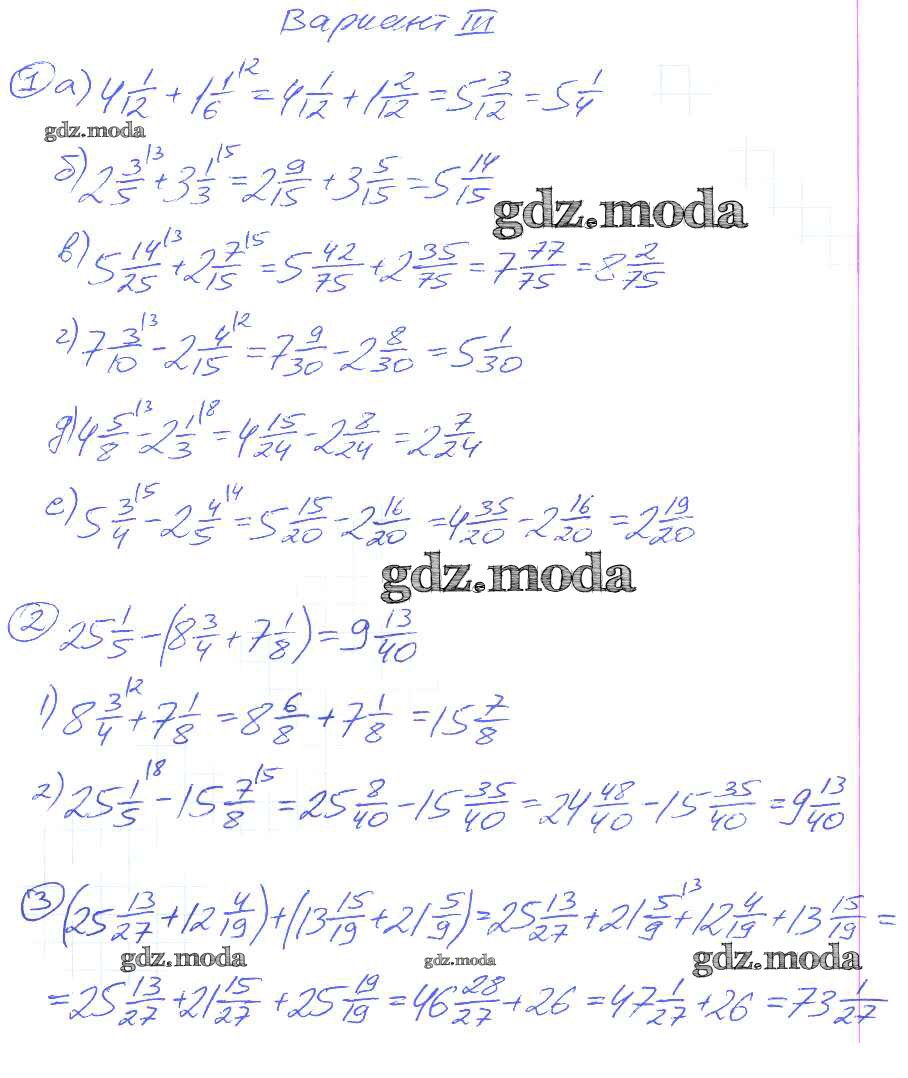 Вариант III
① а) 4 1/12 + 1 1/6 |2 = 4 1/12 + 1 2/12 = 5 3/12 = 5 1/4
gdz.moda
б) 2 3/5 |3 + 3 1/3 |5 = 2 9/15 + 3 5/15 = 5 14/15
gdz.moda
в) 5 14/25 |3 + 2 7/15 |5 = 5 42/75 + 2 35/75 = 7 77/75 = 8 2/75
г) 7 3/10 |3 - 2 4/15 |2 = 7 9/30 - 2 8/30 = 5 1/30
д) 4 5/8 |3 - 2 1/3 |8 = 4 15/24 - 2 8/24 = 2 7/24
е) 5 3/4 |5 - 2 4/5 |4 = 5 15/20 - 2 16/20 = 4 35/20 - 2 16/20 = 2 19/20
gdz.moda
② 25 1/5 - (8 3/4 + 7 1/8) = 9 13/40
1) 8 3/4 |2 + 7 1/8 = 8 6/8 + 7 1/8 = 15 7/8
2) 25 1/5 |8 - 15 7/8 |5 = 25 8/40 - 15 35/40 = 24 48/40 - 15 35/40 = 9 13/40
③ (25 13/27 + 12 4/19) + (13 15/19 + 21 5/9) = 25 13/27 + 21 5/9 |3 + 12 4/19 + 13 15/19 =
gdz.moda gdz.moda gdz.moda
= 25 13/27 + 21 15/27 + 25 19/19 = 46 28/27 + 26 = 47 1/27 + 26 = 73 1/27